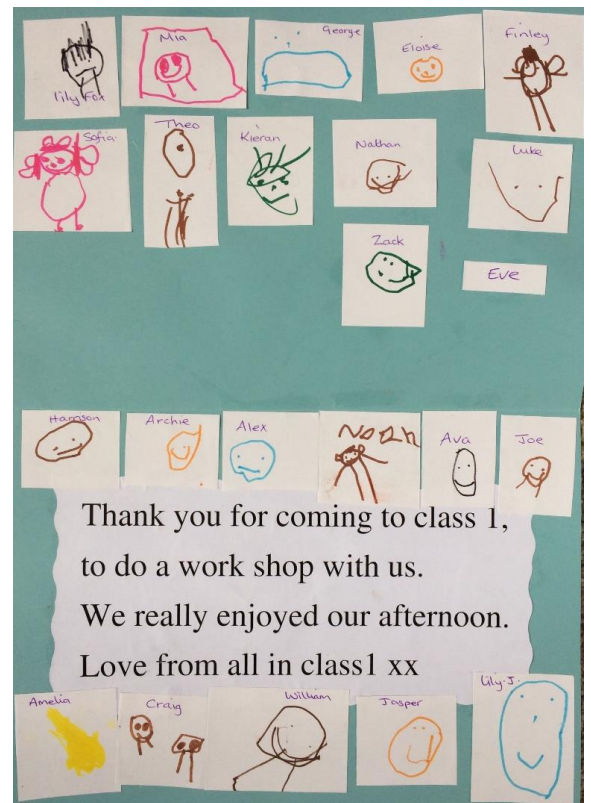 Lily Fox Mia George Eloise Finley
Sofia Theo Kieran Nathan Luke
Zack Eve
Harrison Archie Alex Noah Ava Joe
Thank you for coming to class 1,
to do a work shop with us.
We really enjoyed our afternoon.
Love from all in class1 xx
Amelia Craig William Jasper Lily-J.